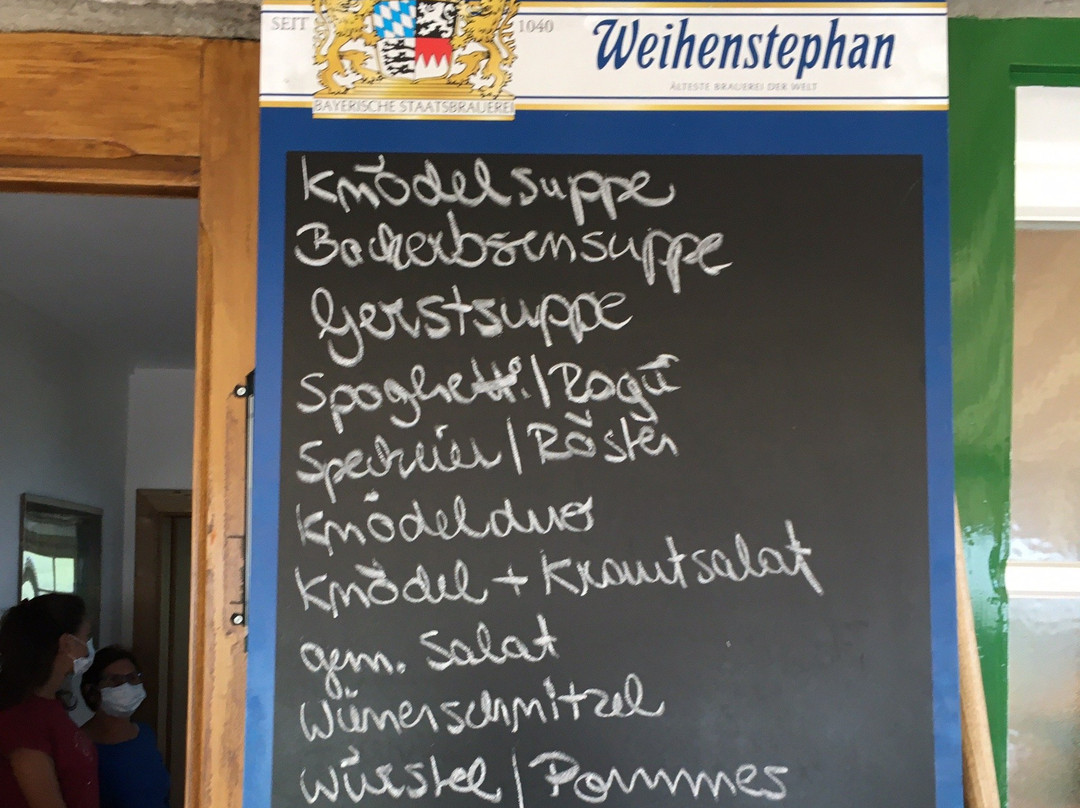 SEIT 1040
Weihenstephan
ÄLTESTE BRAUEREI DER WELT
BAYERISCHE STAATSBRAUEREI
Knödelsuppe
Backerbsensuppe
Gerstsuppe
Spaghetti/Ragú
Speckeier/Röster
Knödelduo
Knödel + Krautsalat
gem. Salat
Wienerschnitzel
Würstel/Pommes